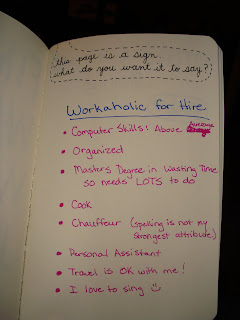 this page is a sign.
what do you want it to say?
Workaholic for Hire
• Computer Skills: Above Awesome
• Organized
• Masters Degree in Wasting Time
so needs LOTS to do
• Cook
• Chauffeur (spelling is not my
strongest attribute)
• Personal Assistant
• Travel is OK with me!
• I love to sing